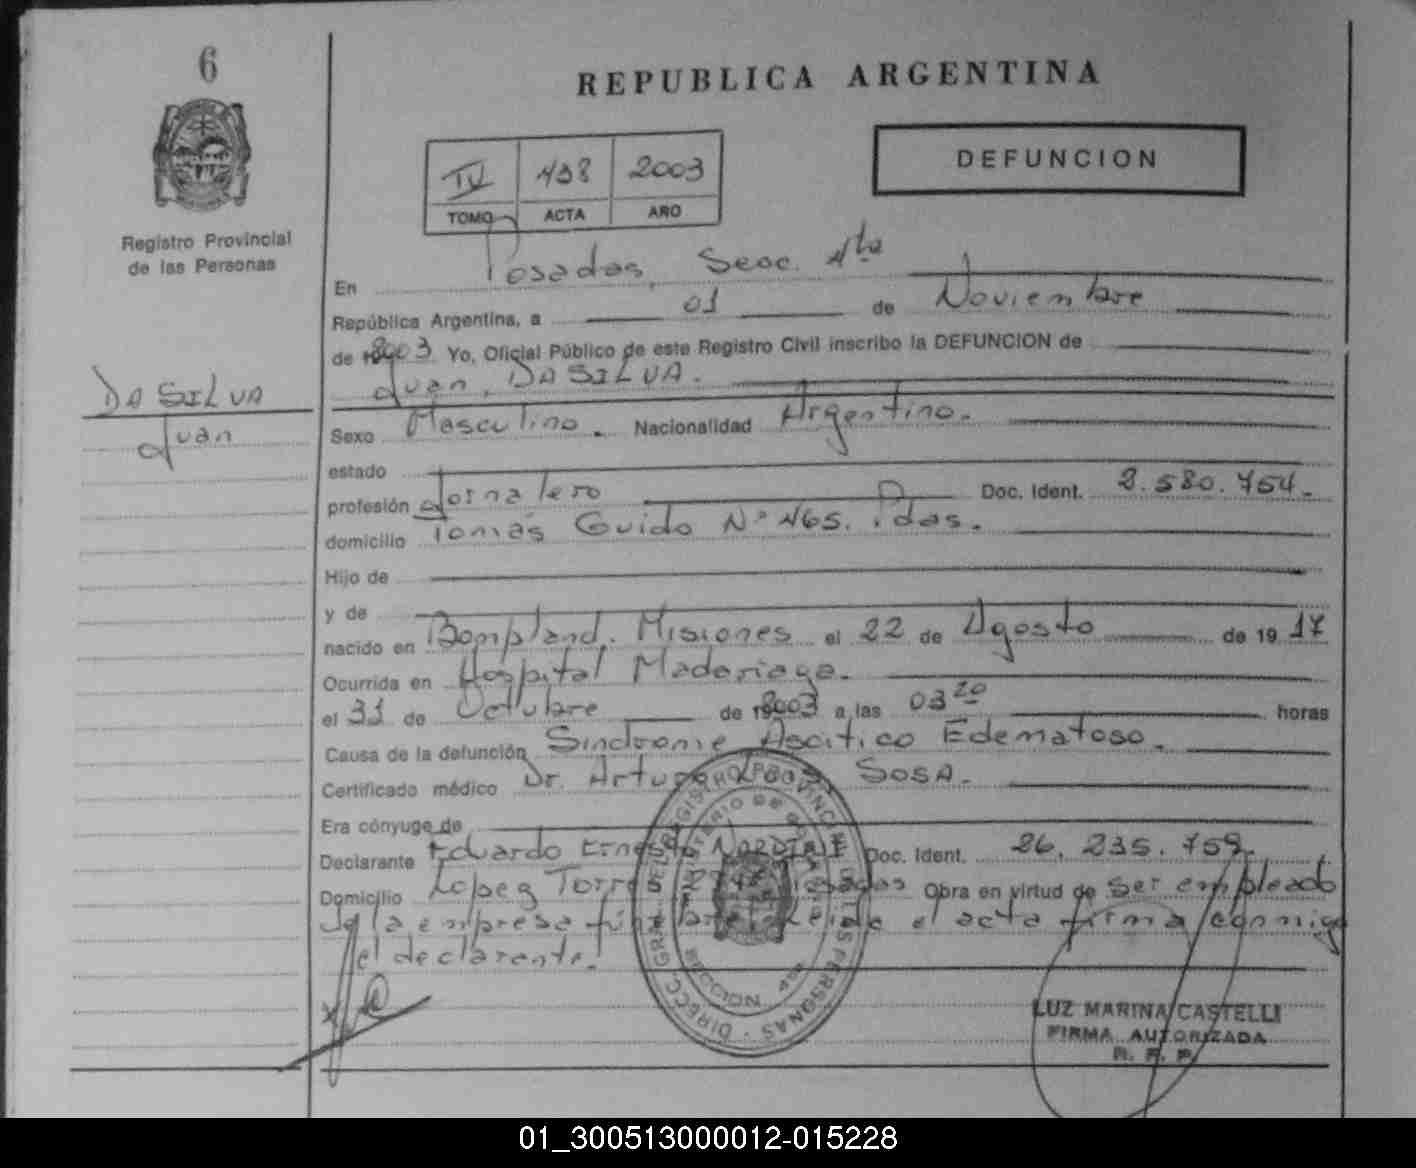 6
REPUBLICA ARGENTINA
DEFUNCION
IV 438 2003
TOMO ACTA AÑO
Registro Provincial
de las Personas
En Posadas, Secc. 4ta
República Argentina, a 01 de Noviembre
de 2003 Yo, Oficial Público de este Registro Civil inscribo la DEFUNCION de
Juan, DA SILVA.
DA SILVA
Juan
Sexo Masculino. Nacionalidad Argentino.
estado
profesión Jornalero Doc. Ident. 2.580.754.
domicilio Tomás Guido Nº 465. Pdas.
Hijo de
y de
nacido en Bompland. Misiones el 22 de Agosto de 1917
Ocurrida en Hospital Madariaga.
el 31 de Octubre de 2003 a las 03 20 horas
Causa de la defunción Sindrome Ascitico Edematoso.
Certificado médico Dr. Arturo SOSA.
Era cónyuge de
Declarante Eduardo Ernesto Doc. Ident. 26.235.759.
Domicilio Lopez Torres Posadas Obra en virtud de Ser empleado
de la empresa funebre. Leida el acta firma conmigo
el declarante.
LUZ MARINA CASTELLI
FIRMA AUTORIZADA
R. P. P.
01_300513000012-015228